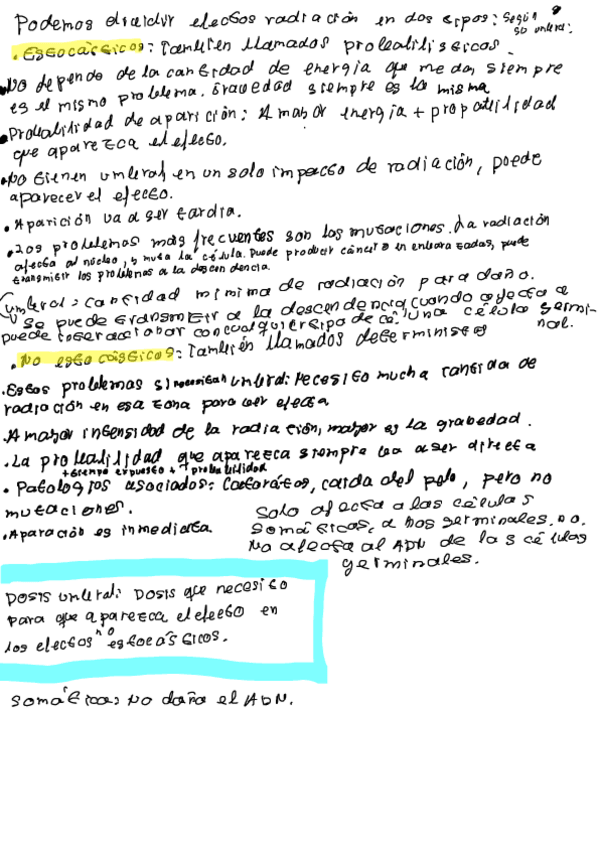 Podemos dividir efectos radiación en dos tipos: según su umbral:
• Estocásticos: También llamados probabilísticos.
• No depende de la cantidad de energía que me dan, siempre
es el mismo problema. Gravedad siempre es la misma
• Probabilidad de aparición: A mayor energía + propabilidad
que aparezca el efecto.
• No tienen umbral, en un solo impacto de radiación, puede
aparecer el efecto.
• Aparición va a ser tardía.
• Los problemas más frecuentes son las mutaciones. La radiación
afecta al núcleo, y muta la célula. Puede producir cáncer o en embarazadas, puede
transmitir los problemas a la descendencia.
umbral: cantidad mínima de radiación para daño.
Se puede transmitir a la descendencia cuando afecta a
puede interaccionar con cualquier tipo de cél una célula germinal.
• No estocásticos: También llamados determinist
• Estos problemas si necesitan umbral: Necesito mucha cantida de
radiación en esa zona para ver efecto
• A mayor intensidad de la radiación, mayor es la grabedad.
• La probabilidad que aparezca siempre va a ser directa
+ tiempo expuesto + probabilidad
• Patologías asociados: Cataratas, caida del pelo, pero no
mutaciones.
• Aparación es inmediata
Solo afecta a las células
somáticas, a las germinales, no.
No afecta al ADN de las células
germinales.
DOSIS umbral: DOSIS que necesito
para que aparezca el efecto en
los efectos no estocásticos.
somática: No daña el ADN.